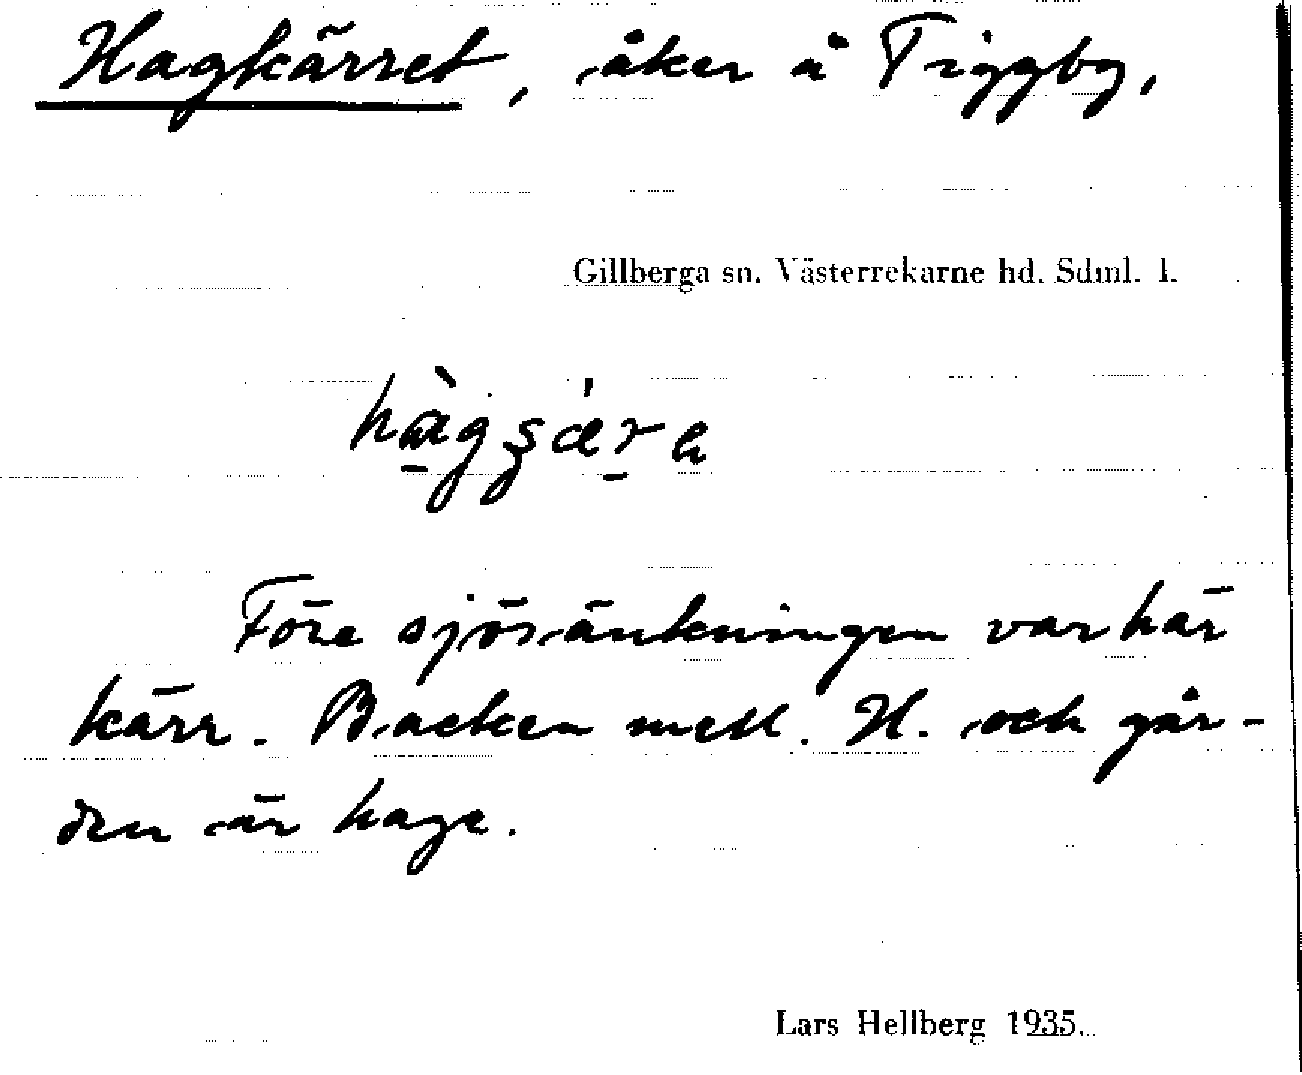 Hagkärret, åker å Tiggby,
Gillberga sn. Västerrekarne hd. Sdml. l.
Före sjösänkningen var här
kärr. Backen mell. H. och går-
den är hage.
Lars Hellberg 1935.